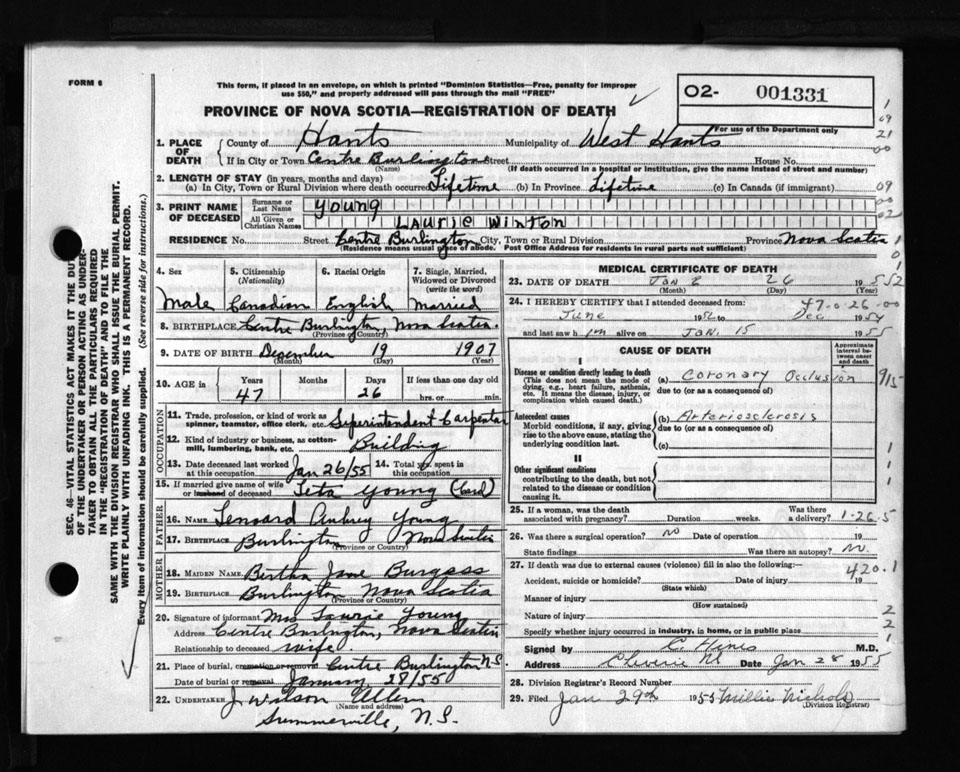 FORM 6
This form, if placed in an envelope, on which is printed "Dominion Statistics—Free, penalty for improper
use $50," and properly addressed will pass through the mail "FREE"
PROVINCE OF NOVA SCOTIA—REGISTRATION OF DEATH
02- 001331
For use of the Department only
1 09 21 00
SEC. 46—VITAL STATISTICS ACT MAKES IT THE DUTY
OF THE UNDERTAKER OR PERSON ACTING AS UNDER-
TAKER TO OBTAIN ALL THE PARTICULARS REQUIRED
IN THE "REGISTRATION OF DEATH" AND TO FILE THE
SAME WITH THE DIVISION REGISTRAR WHO SHALL ISSUE THE BURIAL PERMIT.
WRITE PLAINLY WITH UNFADING INK. THIS IS A PERMANENT RECORD.
Every item of information should be carefully supplied. (See reverse side for instructions.)
1. PLACE OF DEATH County of Hants Municipality of West Hants
If in City or Town Centre Burlington Street House No.
(Name) (If death occurred in a hospital or institution, give the name instead of street and number)
2. LENGTH OF STAY (in years, months and days)
(a) In City, Town or Rural Division where death occurred Lifetime (b) In Province Lifetime (c) In Canada (if immigrant) 09
3. PRINT NAME OF DECEASED Surname or Last Name Young 00
All Given or Christian Names LAURIE WINTON 02
RESIDENCE No. Street Centre Burlington City, Town or Rural Division Province Nova Scotia
(Residence means usual place of abode. Post Office Address for residents in rural parts not sufficient)
4. Sex Male
5. Citizenship (Nationality) Canadian
6. Racial Origin English
7. Single, Married, Widowed or Divorced (write the word) Married
8. BIRTHPLACE Centre Burlington, Nova Scotia.
(Province or Country)
9. DATE OF BIRTH December 19 1907
(Month) (Day) (Year)
10. AGE in Years 47 Months Days 26 If less than one day old hrs. or min.
OCCUPATION
11. Trade, profession, or kind of work as spinner, teamster, office clerk, etc. Superintendent Carpenter
12. Kind of industry or business, as cotton-mill, lumbering, bank, etc. Building
13. Date deceased last worked at this occupation Jan 26/55 14. Total yrs. spent in this occupation
15. If married give name of wife or husband of deceased Leta Young
FATHER
16. NAME Lenoard Aubrey Young
17. BIRTHPLACE Burlington Nova Scotia
(Province or Country)
MOTHER
18. MAIDEN NAME Bertha Jane Burgess
19. BIRTHPLACE Burlington Nova Scotia
(Province or Country)
20. Signature of informant Mrs Laurie Young
Address Centre Burlington, Nova Scotia
Relationship to deceased wife.
21. Place of burial, cremation or removal Centre Burlington N.S
Date of burial or removal January 28/55
22. UNDERTAKER J. Wilson Allen
(Name and address)
Summerville, N.S.
MEDICAL CERTIFICATE OF DEATH
23. DATE OF DEATH Jan 26 1955
(Month) (Day) (Year)
24. I HEREBY CERTIFY that I attended deceased from: 47-0-26-00
June 19 to Dec. 1954
and last saw him alive on JAN. 15 1955
CAUSE OF DEATH
Approximate interval between onset and death
I
Disease or condition directly leading to death
(This does not mean the mode of dying, e.g., heart failure, asthenia, etc. It means the disease, injury, or complication which caused death.)
(a) Coronary Occlusion
due to (or as a consequence of)
Antecedent causes
Morbid conditions, if any, giving rise to the above cause, stating the underlying condition last.
(b) Arteriosclerosis
due to (or as a consequence of)
(c)
II
Other significant conditions
contributing to the death, but not related to the disease or condition causing it.
25. If a woman, was the death associated with pregnancy? Duration weeks. Was there a delivery? 1-26-5
26. Was there a surgical operation? no Date of operation 19
State findings Was there an autopsy? No.
27. If death was due to external causes (violence) fill in also the following:— 420.1
Accident, suicide or homicide? Date of injury 19
(State which)
Manner of injury
(How sustained)
Nature of injury
Specify whether injury occurred in industry, in home, or in public place
Signed by C. Hines M.D.
Address Cheverie NS Date Jan 28 1955
28. Division Registrar's Record Number
29. Filed Jan 29th 1955 Millie Nichols
(Division Registrar)